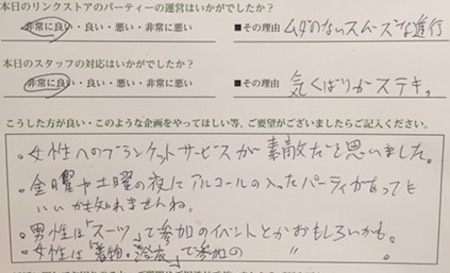 本日のリンクストアのパーティーの運営はいかがでしたか？
非常に良い・良い・悪い・非常に悪い ■その理由 ムダのないスムーズな進行
本日のスタッフの対応はいかがでしたか？
非常に良い・良い・悪い・非常に悪い ■その理由 気くばりがステキ。
こうした方が良い・このような企画をやってほしい等、ご要望がございましたらご記入ください。
・女性へのブランケットサービスが素敵だと思いました。
・金曜や土曜の夜にアルコールの入ったパーティがあっても
いいかも知れませんね。
・男性は「スーツ」で参加のイベントとかおもしろいかも。
・女性は「着物・浴衣」で参加の 〃 。